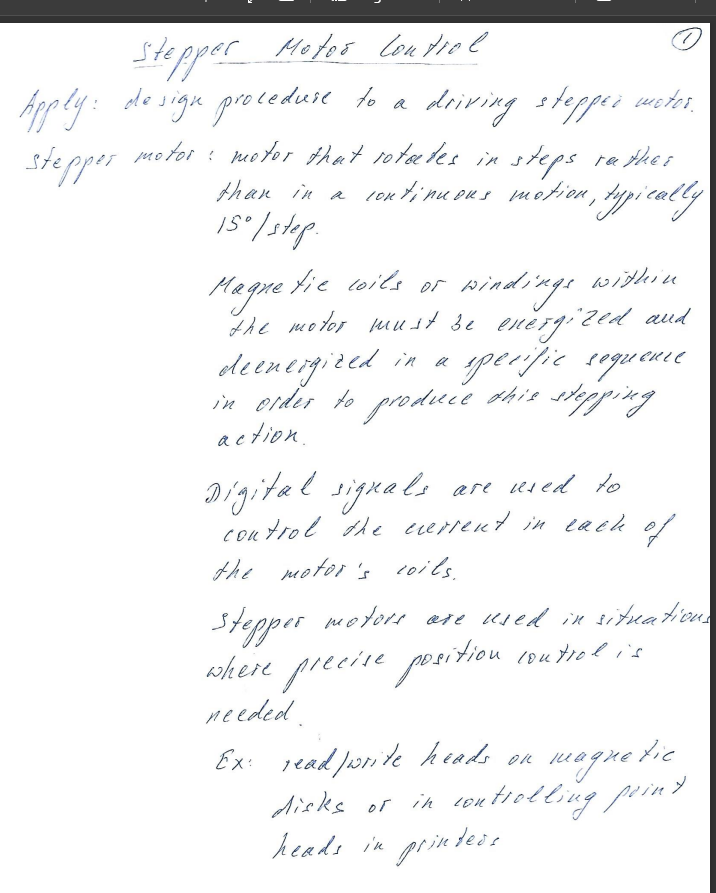 Stepper Motor Control
1
Apply: design procedure to a driving stepper motor.
Stepper motor: motor that rotates in steps rather
than in a continuous motion, typically
15°/step.
Magnetic coils or windings within
the motor must be energized and
deenergized in a specific sequence
in order to produce this stepping
action.
Digital signals are used to
control the current in each of
the motor's coils.
Stepper motors are used in situations
where precise position control is
needed.
Ex: read/write heads on magnetic
disks or in controlling print
heads in printers